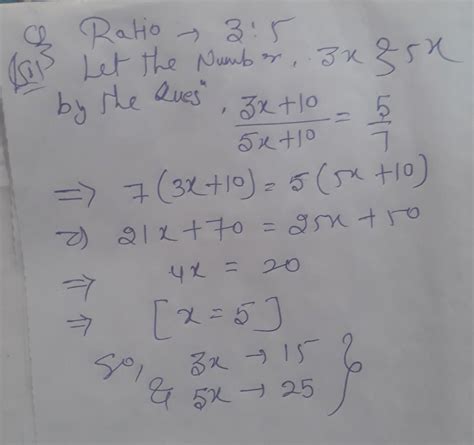 Q Ratio → 3:5
Let the Number, 3x & 5x
by the Ques", 3x+10/5x+10 = 5/7
⇒ 7(3x+10) = 5(5x+10)
⇒ 21x+70 = 25x+50
⇒ 4x = 20
⇒ [x=5]
So, 3x → 15
& 5x → 25 }